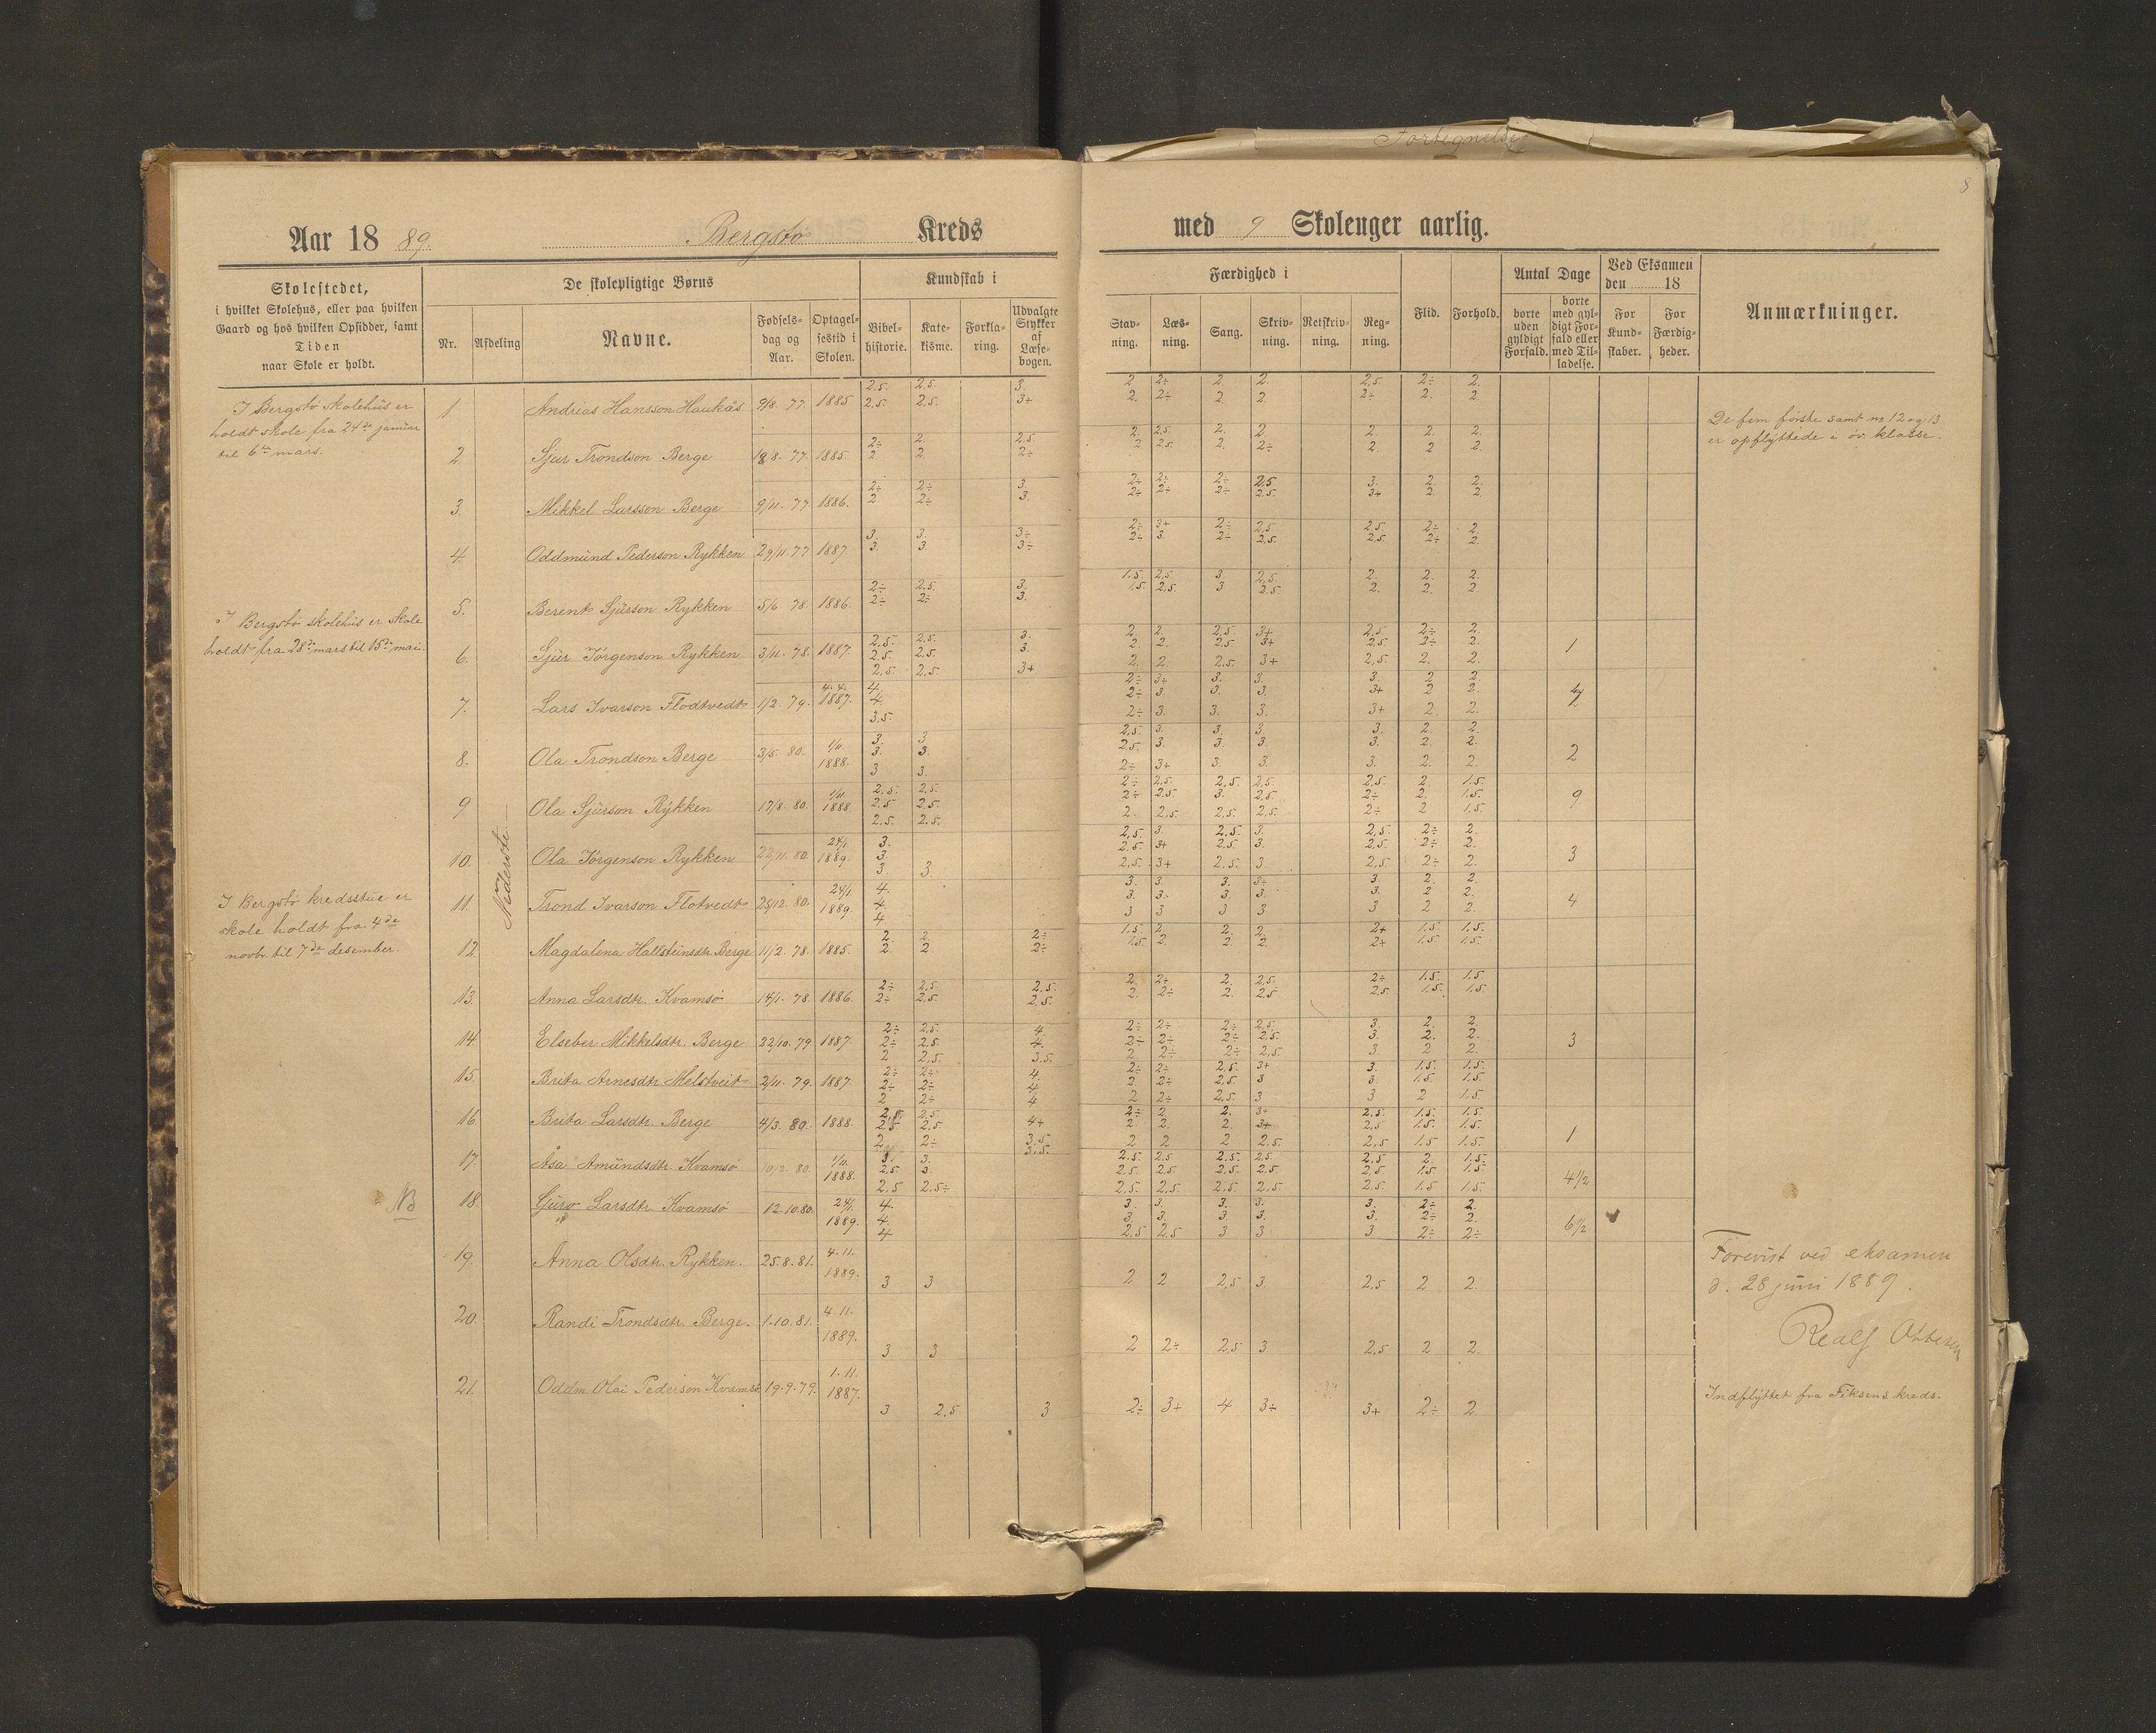 Fortegnelse
8
Aar 1889. Bergstø Kreds med 9 Skoleuger aarlig.
Skolestedet,
i hvilket Skolehus, eller paa hvilken
Gaard og hos hvilken Opsidder, samt
Tiden
naar Skole er holdt.
De skolepligtige Børns
Nr.
Afdeling
Navne.
Fødsels-
dag og
Aar.
Optagel-
sestid i
Skolen.
Kundskab i
Bibel-
historie.
Kate-
kisme.
Forkla-
ring.
Udvalgte
Stykker
af
Læse-
bogen.
Færdighed i
Stav-
ning.
Læs-
ning.
Sang.
Skriv-
ning.
Retskriv-
ning.
Reg-
ning.
Flid.
Forhold.
Antal Dage
borte
uden
gyldigt
Forfald.
borte
med gyl-
digt For-
fald eller
med Til-
ladelse.
Ved Eksamen
den 18
For
Kund-
skaber.
For
Færdig-
heder.
Anmærkninger.
I Bergstø skolehus er
holdt skole fra 24de januar
til 6te mars.
I Bergstø skolehus er skole
holdt fra 28de mars til 15de mai.
I Bergstø kredsstue er
skole holdt fra 4de
novbr. til 7de desember.
NB
Nederste
1. Andrias Hansson Haukås 9/8. 77. 1885
2,5. 2,5. 3. 2 2÷ 2. 2. 2,5 2÷ 2.
2,5. 2,5. 3+ 2. 2÷ 2 2 2÷ 2. 2.
2 Sjur Trondson Berge 18/8. 77. 1885.
2÷ 2. 2,5. 2. 2,5. 2. 2 2. 2. 2.
2 2 2÷ 2 2,5. 2. 2÷ 2. 2 2.
3. Mikkel Larsson Berge 9/11. 77 1886.
2÷ 2÷ 3. 2÷ 2÷ 2÷ 2,5 3. 2. 2.
2 2÷ 3. 2÷ 2÷ 2÷ 2,5. 3+ 2 2
4. Oddmund Pederson Rykken 29/11. 77 1887.
3. 3. 3÷ 2÷ 3+ 2÷ 2,5 2,5. 2÷ 2.
3. 3. 3÷ 2÷ 3. 2÷ 2,5. 2,5 2÷ 2.
5. Berent Sjurson Rykken 5/6. 78. 1886.
2÷ 2,5. 3. 1.5. 2,5. 3. 2,5. 2. 2. 2.
2÷ 2÷ 3. 1.5 2,5. 3 2,5. 2. 2. 2
6. Sjur Jørgenson Rykken 3/11. 78. 1887.
2,5. 2,5. 3. 2. 2. 2,5. 3+ 2,5 2÷ 2.
2,5. 2,5. 3. 2. 2. 2,5 3+ 2,5 2÷ 2. 1
2,5 2,5 3+ 2. 2. 2,5. 3+ 2,5 2. 2.
7. Lars Ivarson Flodtvedt 1/2. 79. 4.4. 1887.
4. 2÷ 3÷ 3. 3. 3. 2 2.
4. 2÷ 3. 3. 3. 3+ 2 2.
3,5. 2÷ 3. 3. 3. 3+ 2. 2.
8. Ola Trondson Berge 3/5. 80. 1/11. 1888.
3. 3 2,5. 3. 3. 3. 3. 2. 2.
3. 3. 2,5. 3. 3. 3. 3. 2. 2. 2
3 3. 2÷ 3+ 3. 3. 3. 2. 2.
9 Ola Sjurson Rykken 17/8. 80. 1/11 1888
2,5. 2,5. 2÷ 2,5. 2,5. 2,5 2,5 2. 1.5.
2,5 2,5. 2÷ 2,5 3. 2,5. 2÷ 2. 1.5. 9
2,5. 2,5. 2. 2,5. 2,5. 2,5. 2÷ 2 1.5.
10. Ola Jørgenson Rykken 22/11. 80. 24/1 1889.
3. 2,5. 3. 2,5. 3. 2,5. 2÷ 2.
3. 2,5 3+ 2,5 3. 2,5. 2÷ 2. 3
3 3. 2,5. 3+ 2,5. 3 2,5 2÷ 2.
11. Trond Ivarson Flotvedt 28/12. 80. 24/1. 1889.
4. 3. 3. 3. 3÷ 3. 2. 2.
4. 3. 3. 3. 3. 3. 2 2. 4
4 3 3 3 3 3 2 2.
12 Magdalena Hallsteinsdtr. Berge 11/2. 78. 1885.
2. 2. 2÷ 1.5. 2. 2. 2. 2+ 1.5. 1.5.
2. 2. 2÷ 1.5. 2. 2. 2. 2+ 1.5 1.5.
13. Anna Larsdtr. Kvamsø 14/1. 78 1886.
2÷ 2,5. 2,5. 2. 2÷ 2. 2,5. 2÷ 1.5. 1.5.
2÷ 2,5 2,5. 2. 2÷ 2. 2,5 2,5. 1.5. 1.5
14. Elseber Mikkelsdtr. Berge 22/10. 79 1887.
2÷ 2,5. 4. 2÷ 2÷ 2÷ 2,5. 3. 2. 2.
2÷ 2,5. 4. 2÷ 2÷ 2÷ 2,5. 3. 2. 2. 3
2 2,5. 3.5. 2 2÷ 2÷ 2,5. 3. 2 2.
15. Brita Arnesdtr. Melstveit 2/11. 79. 1887.
2÷ 2÷ 4. 2÷ 2÷ 2,5. 3+ 3. 1.5. 1.5.
2÷ 2÷ 4. 2 2÷ 2,5. 3 3. 1.5. 1.5.
2 2÷ 4 2 2÷ 2,5. 3 3 2 1.5.
16. Brita Larsdtr. Berge 4/3. 80. 1888.
2,5. 2,5 2÷ 2. 2. 3+ 2,5. 1.5. 1.5.
2,5 2,5 4+ 2. 2. 2. 3+ 2,5 1.5. 1.5. 1
2 2÷ 3.5. 2 2 2 2,5. 2,5 1.5 1.5.
17. Åsa Amundsdtr. Kvamsø 10/2. 80. 1/11. 1888.
3. 3. 3.5. 2,5. 2,5 2,5. 2,5 2,5 2. 1.5.
2,5 3. 2,5. 2,5 2,5. 2,5. 2,5. 1.5 1.5.
2,5 2,5÷ 2,5. 2,5. 2,5 2,5. 2,5. 1.5 1.5. 4½
18. Guro Larsdtr. Kvamsø 12.10.80. 24/1. 1889.
4. 3. 3. 3. 3. 3. 2÷ 2.
4. 3. 3. 3. 3. 3. 2÷ 2. 6½
4 2,5 2,5 3 3 3 2÷ 2÷
19. Anna Olsdtr. Rykken. 25.8.81. 4.11. 1889.
3 3 2 2 2,5 3. 2,5 2 2.
20. Randi Trondsdtr. Berge. 1.10.81. 4.11. 1889.
3 3 2 2÷ 2,5 3 2,5 2 2.
21. Oddm. Olai Pederson Kvamsø 19.9.79. 1.11. 1887.
3 2,5 3 2÷ 3+ 4 3÷ 3+ 2÷ 2.
De fem første samt no 12 og 13
er opflyttede i øv. klasse.
Forevist ved eksamen
d. 28 juni 1889.
Realf Ottesen
Indflyttet fra Fiksens kreds.